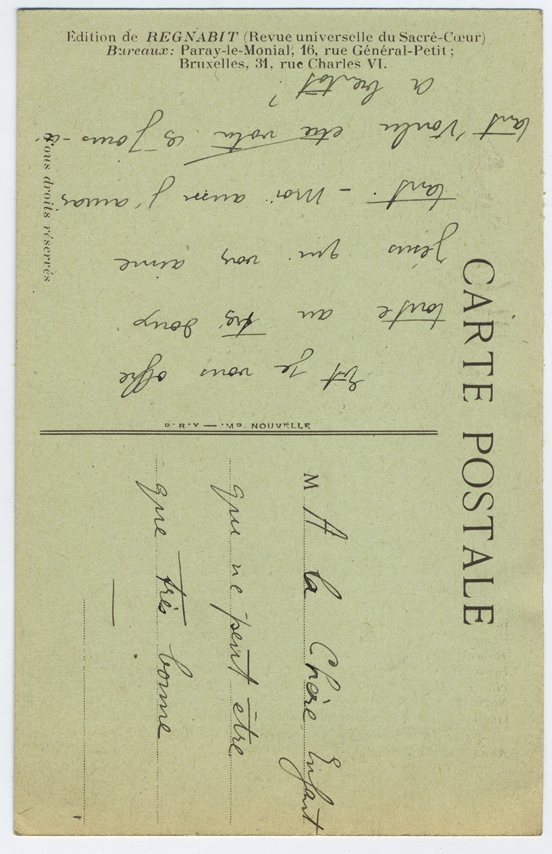 Edition de REGNABIT (Revue universelle du Sacré-Cœur)
Bureaux: Paray-le-Monial, 16, rue Général-Petit;
Bruxelles, 31, rue Charles VI.
Tous droits réservés
CARTE POSTALE
IMP. NOUVELLE
M A la Chère Enfant
qui ne peut être
que très bonne
Et je vous offre
toute au très doux
Jésus qui vous aime
tant. - Moi aussi j'aurais
tant voulu être votre ces jours-ci
A bientôt?